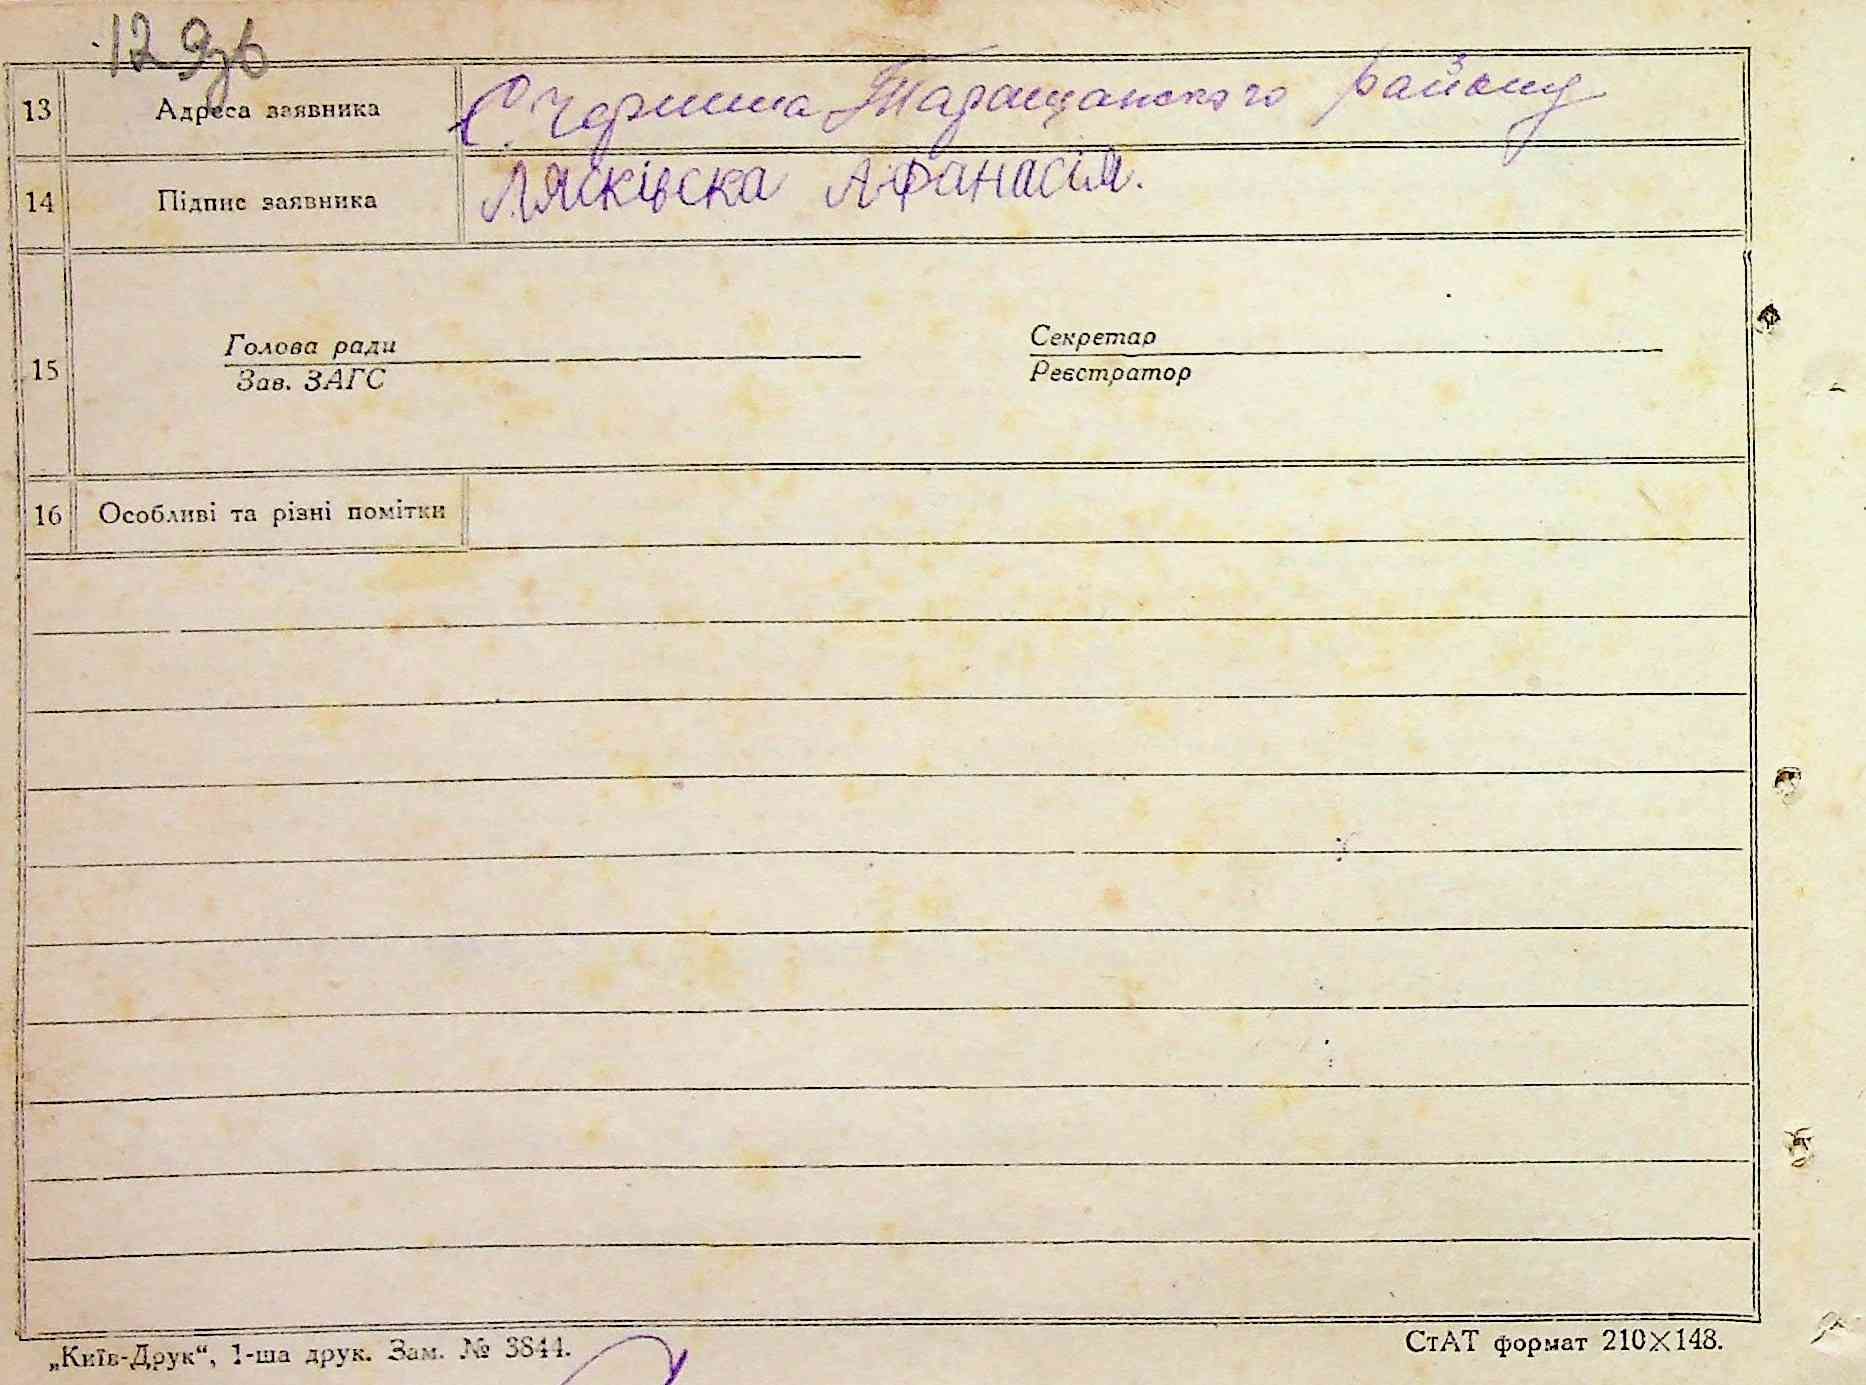 12 зв
13 Адреса заявника С. Чернина Таращанского району
14 Підпис заявника Лясківска Афанасія.
15
Голова ради Секретар
Зав. ЗАГС Реєстратор
16 Особливі та різні помітки
„Київ-Друк“, 1-ша друк. Зам. № 3844. СтАТ формат 210×148.